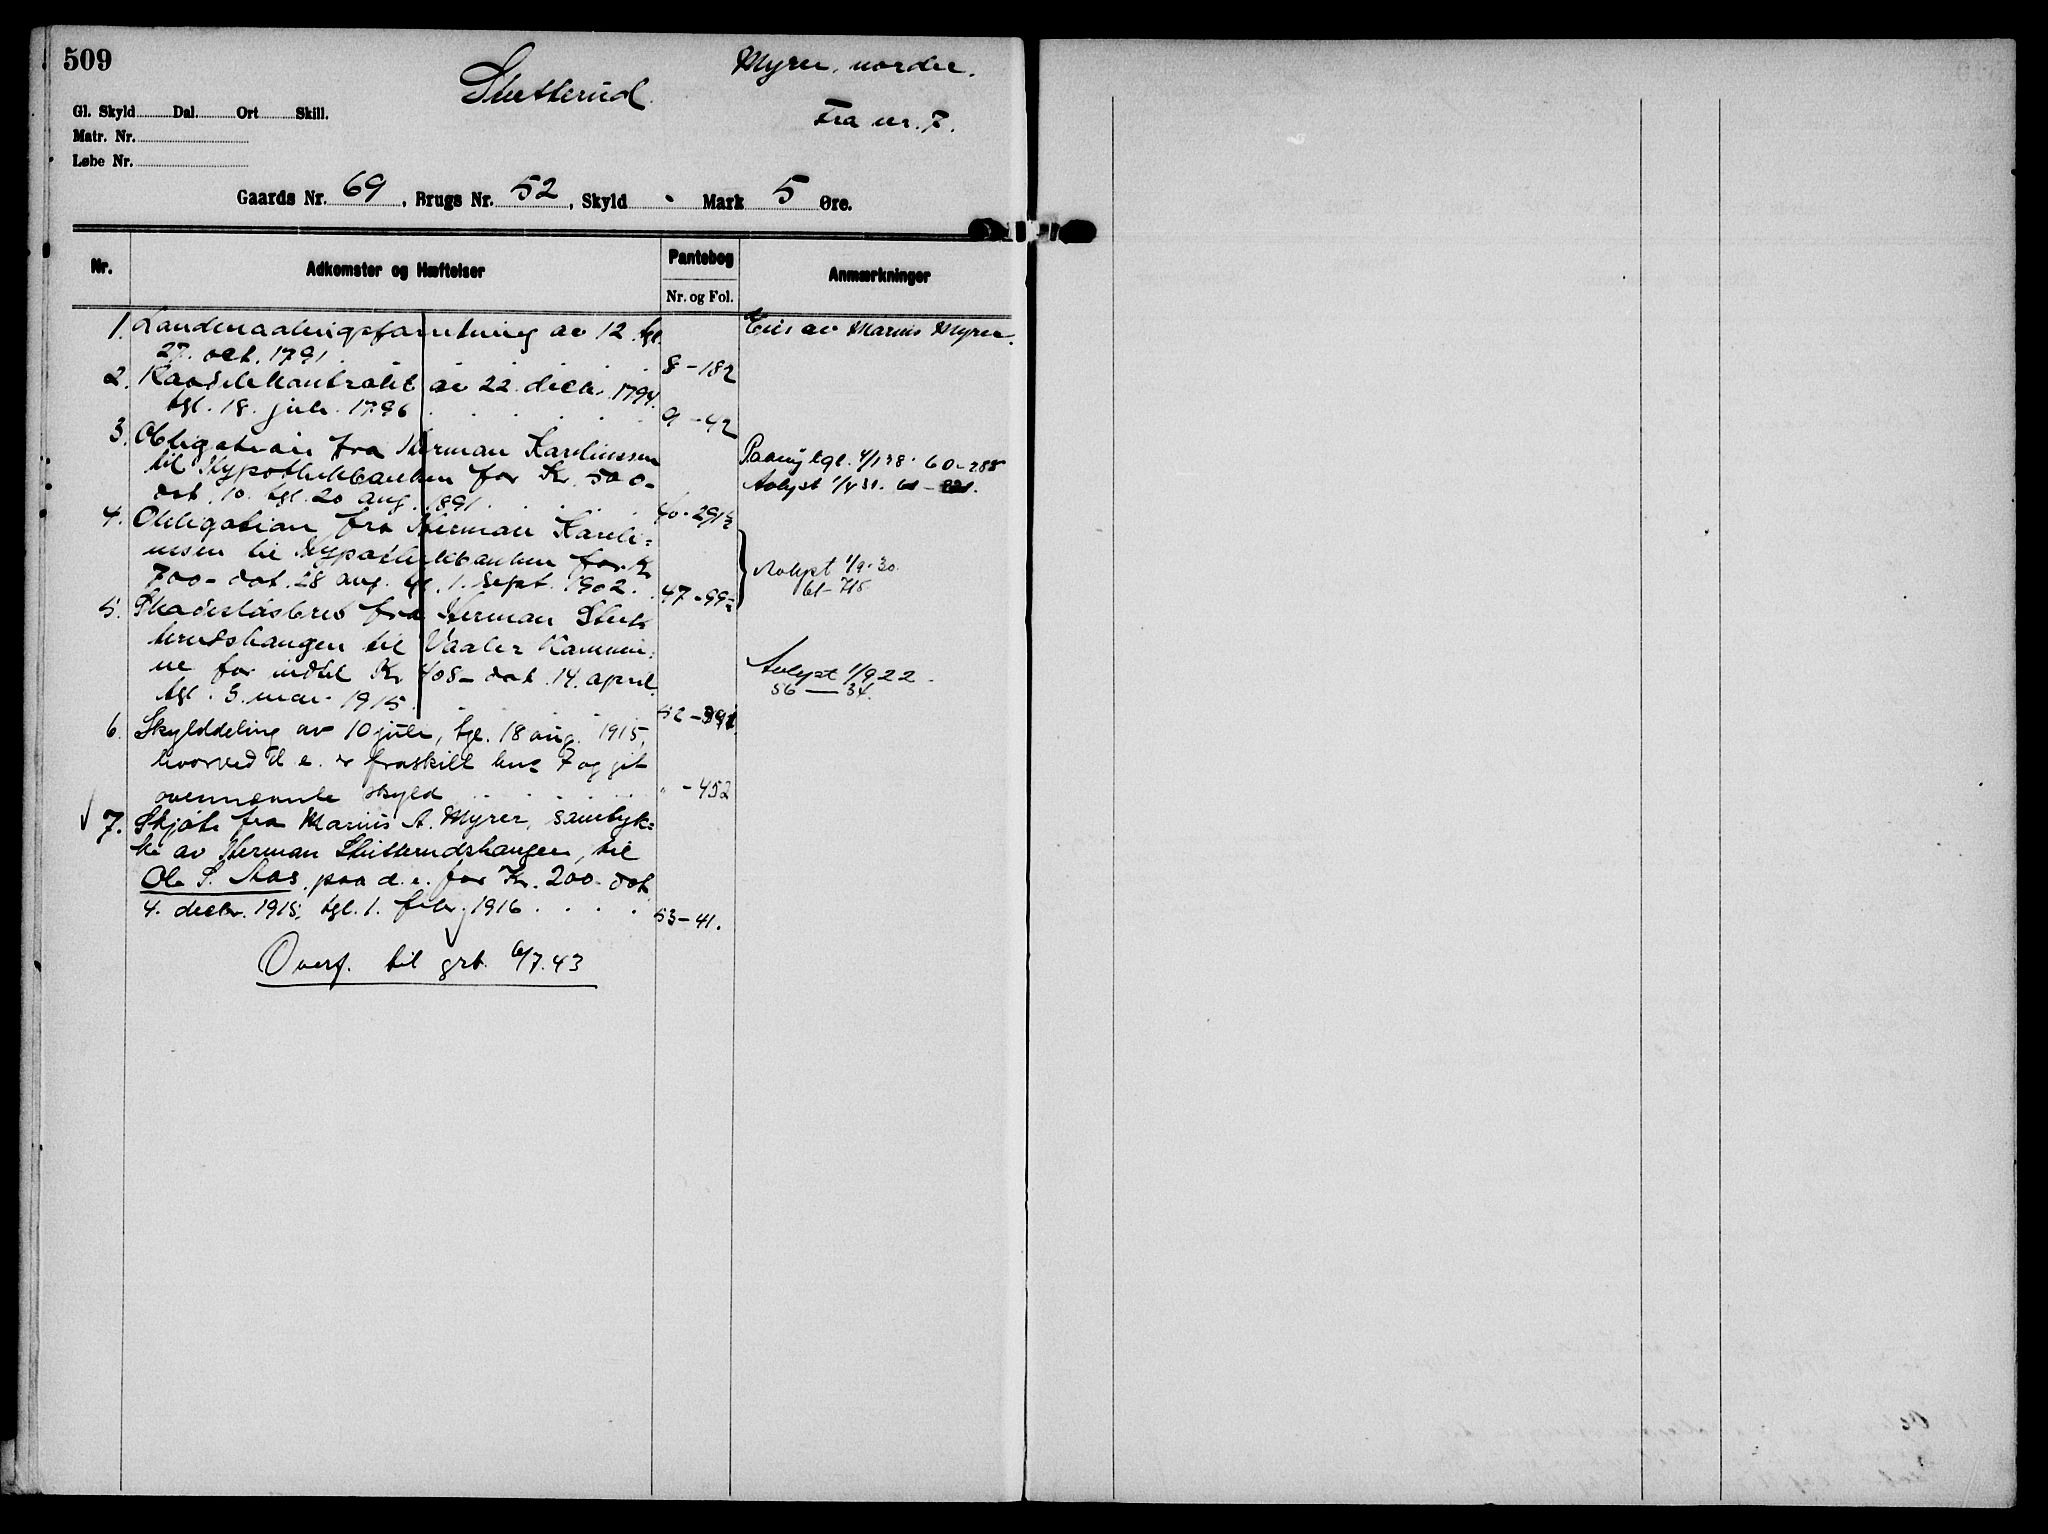 509
Myrer, nordre.
Slutterud.
Fra nr. 7.
Gl. Skyld Dal. Ort Skill.
Matr. Nr.
Løbe Nr.
Gaards Nr. 69, Brugs Nr. 52, Skyld - Mark 5 Øre.
Nr.
Adkomster og Hæftelser
Pantebog
Nr. og Fol.
Anmærkninger
1. av 12. tgl.
27. oct. 1791. 8 - 182
Eies av Marius Myrer.
2. av 22. decbr. 1794.
tgl. 18. juli 1796 9 - 42
3. Obligation fra Herman Karelinssen
til Hypothekbanken for Kr. 500-
dat. 10. tgl. 20 aug. 1891. 40 - 291
Paany tgl. 60-288
Avlyst
4. Obligation fra Herman Kareli=
nssen til Hypothekbanken for Kr
700- dat. 28 aug. tgl. 1. sept. 1902. 47 - 99
Avlyst 1/9-30
61-718.
5. Skadesløsbrev fra Herman Slut=
terudshaugen til Vaaler Kommu=
ne for indtil Kr. 408- dat. 14. april
tgl. 3. mai 1915. 52 - 391
Avlyst 1/9 22.
56 — 34.
6. Skylddeling av 10 juli, tgl. 18 aug. 1915,
hvorved d. e. er fraskilt bnr 7 og git
ovennævnte skyld " - 452
7. Skjøte fra Marius A. Myrer, samtyk=
ke av Herman Slutterudshaugen, til
Ole S. Aas paa d. e. for Kr. 200- dat
4. decbr. 1915, tgl. 1. febr. 1916 53 - 41.
Overf. til grb. 6/7.43